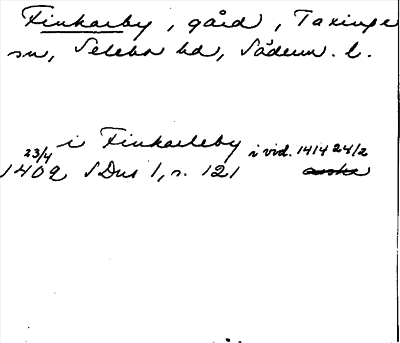 Finkarby, gård, Taxinge
sn, Selebo hd, Söderm. l.
i Finkarleby i vid. 1414 24/2
23/4
1409 SDns 1, s. 121